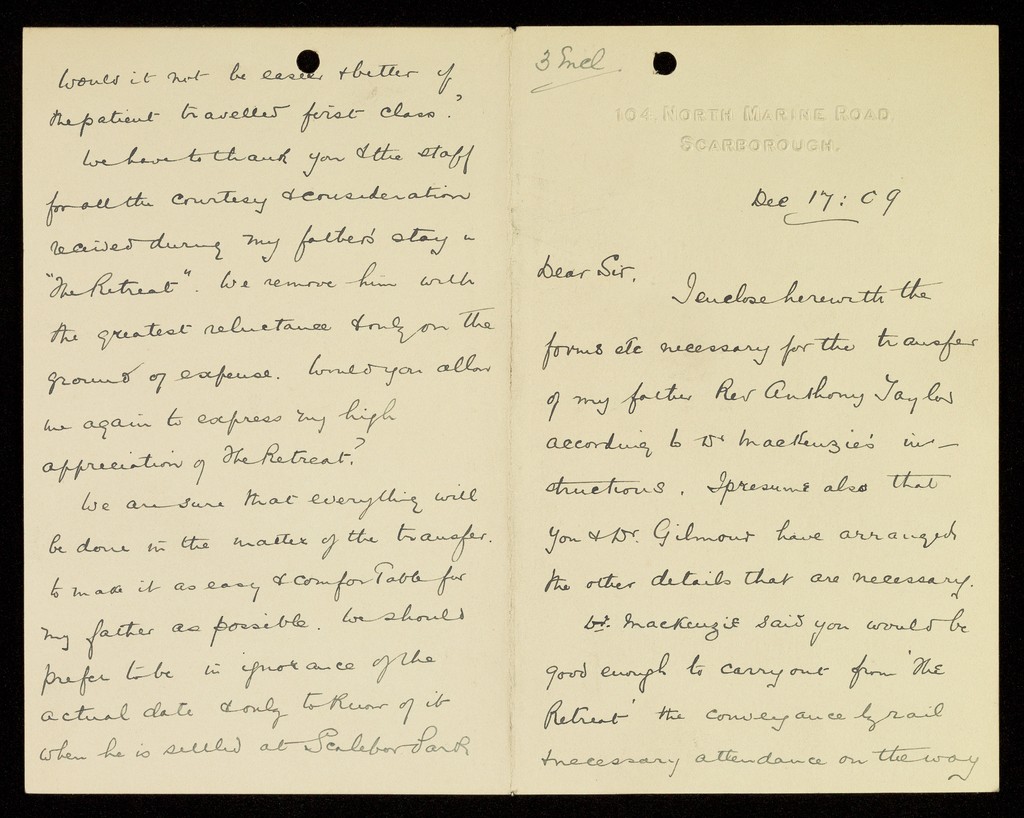 3 Encl
104, NORTH MARINE ROAD,
SCARBOROUGH.
Dec 17: 09
Dear Sir,
I enclose herewith the
forms etc necessary for the transfer
of my father Rev Anthony Taylor
according to Dr MacKenzie's in-
structions. I presume also that
you & Dr. Gilmour have arranged
the other details that are necessary.
Dr. MacKenzie said you would be
good enough to carry out from 'The
Retreat' the conveyance by rail
& necessary attendance on the way
Would it not be easier & better if
the patient travelled first class?
We have to thank you & the staff
for all the courtesy & consideration
received during my father's stay in
"The Retreat". We remove him with
the greatest reluctance & only on the
ground of expense. Would you allow
me again to express my high
appreciation of The Retreat?
We are sure that everything will
be done in the matter of the transfer.
to make it as easy & comfortable for
my father as possible. We should
prefer to be in ignorance of the
actual date & only to know of it
when he is settled at Scalebor Park